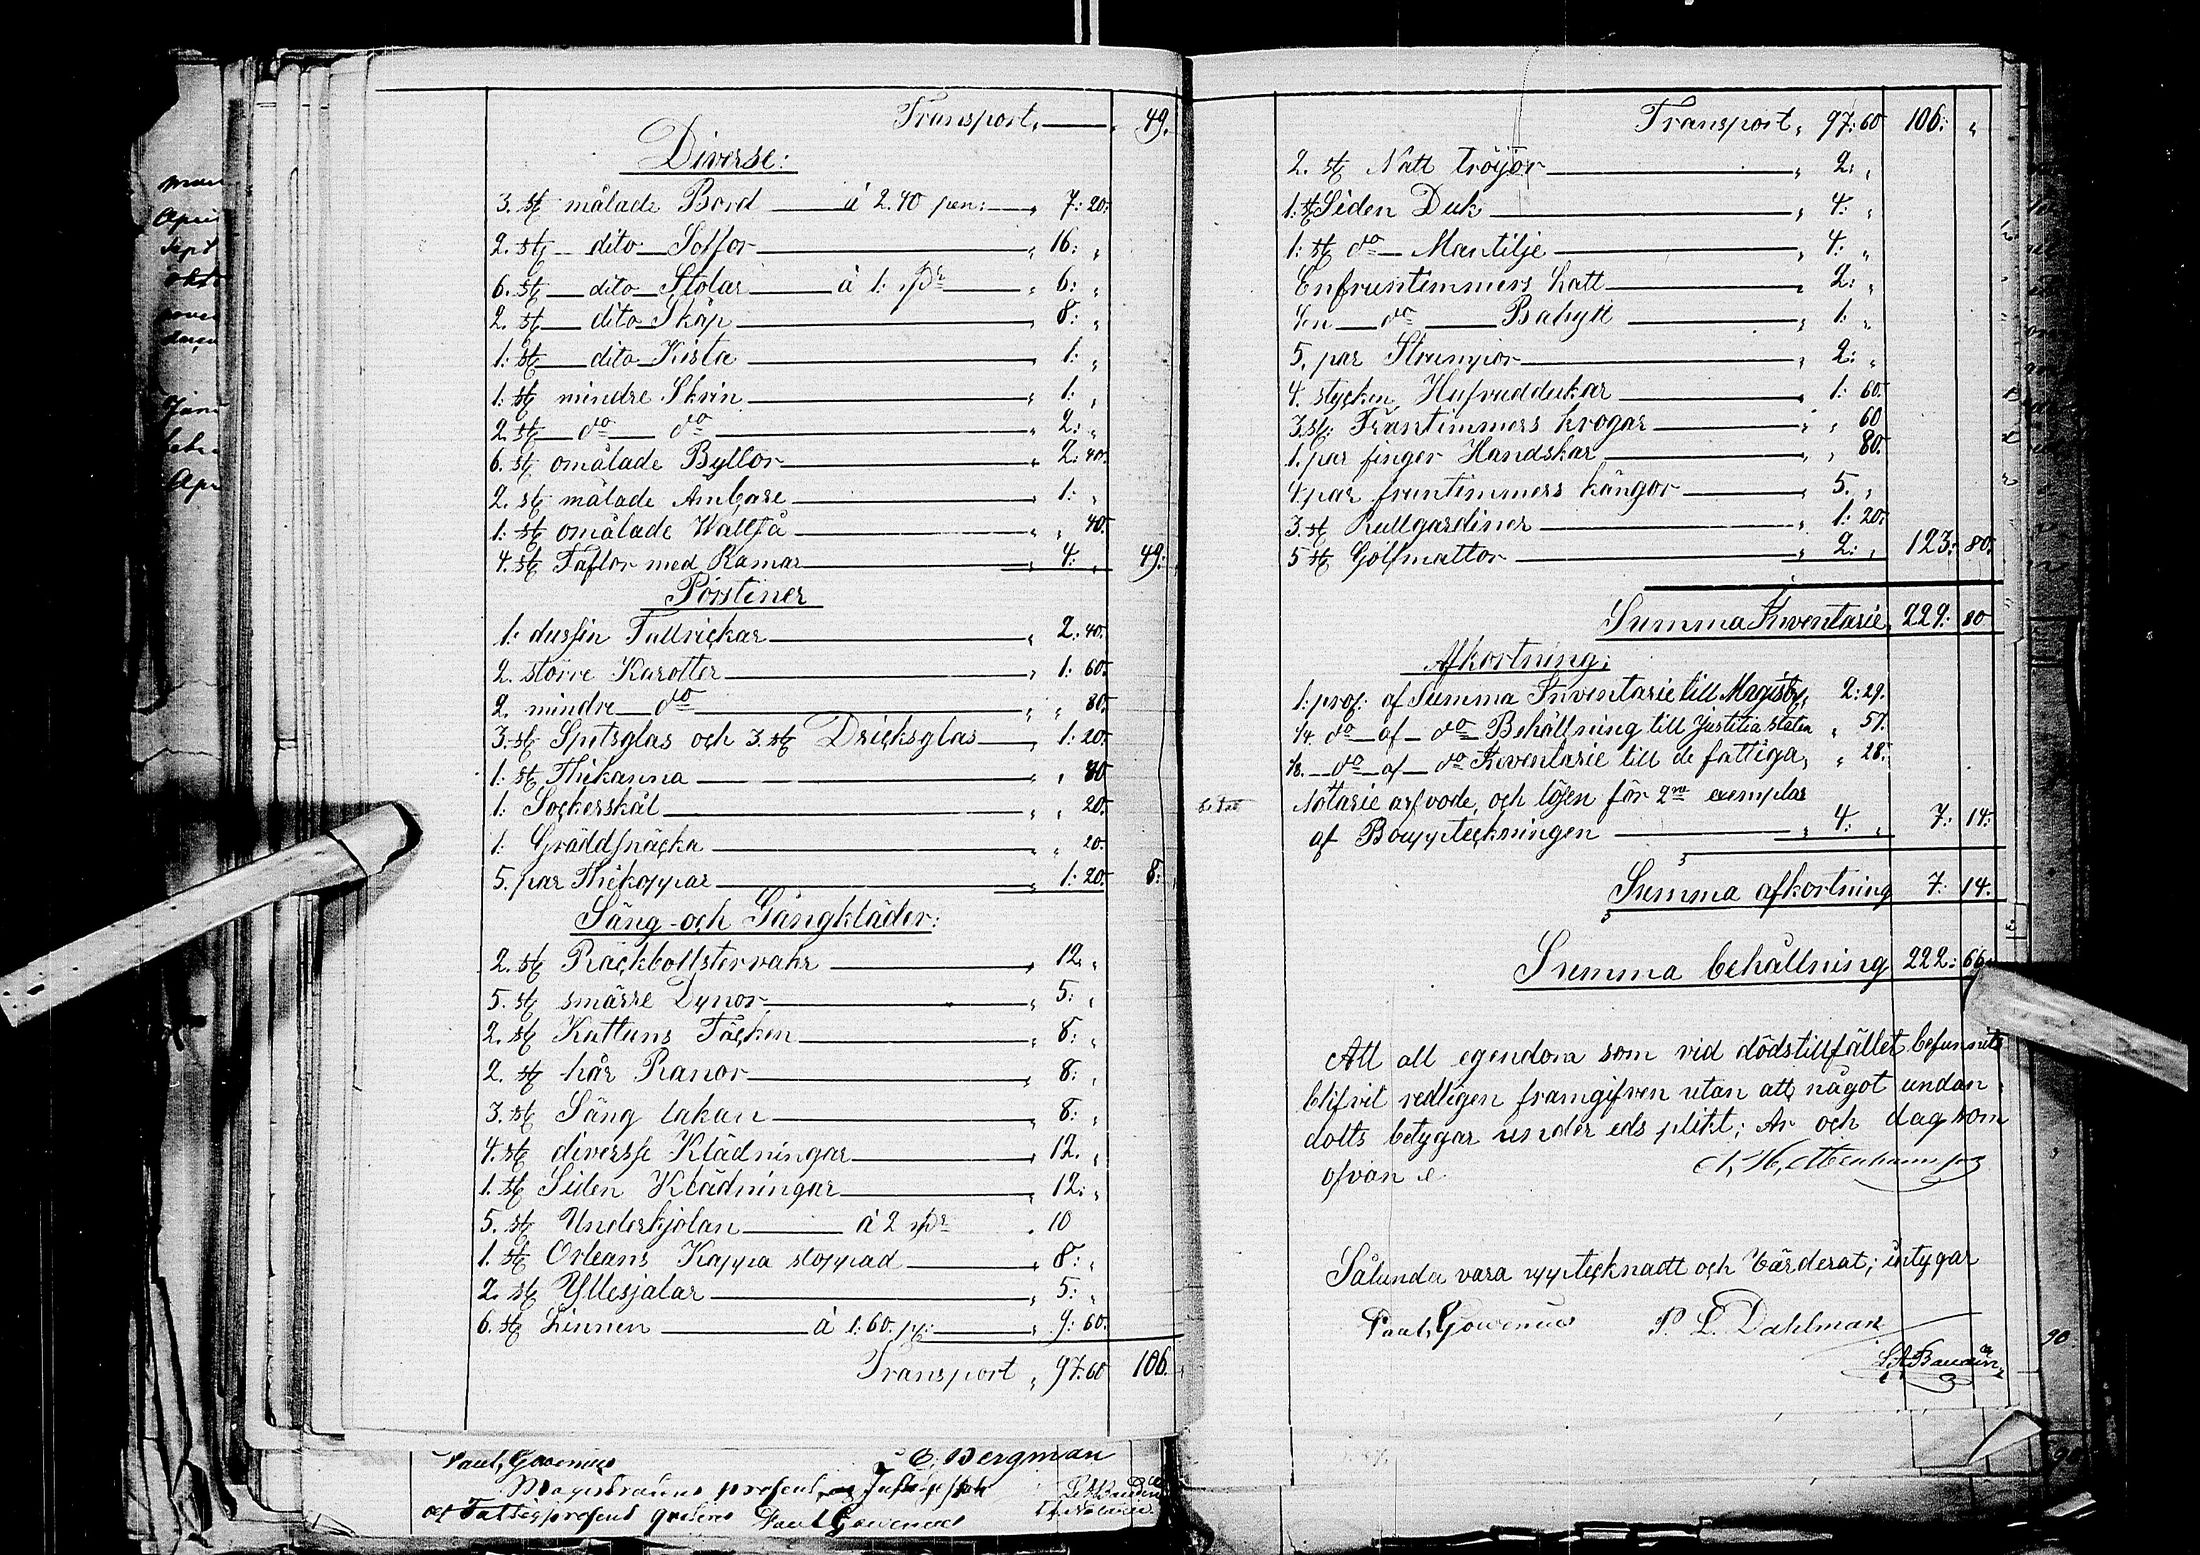 Transport „ 49.
Diverse:
3. st målade Bord à 2.40 pen: „ 7: 20.
2. st dito Soffor „ 16: „
6. st dito Stolar à 1: „ 6: „
2. st dito Skåp „ 8: „
1: st dito Kista 1: „
1: st mindre Skrin „ 1: „
2. st do do „ 2: „
6. st omålade Byttor „ 2: 40.
2. st målade Ambare „ 1: „
1: st omålade „ „ 40.
4. st Taflor med Ramar „ 4: „ 49:
Porsliner
1: dussin Tallrickar „ 2: 40.
2. större Karotter „ 1: 60.
2. mindre do „ „ 80.
3. st Spetsglas och 3. st Dricksglas „ 1: 20.
1: st Thekanna „ „ 80
1: Sockerskål „ „ 20.
1: Gräddsnäcka „ „ 20.
5. par Thekoppar „ 1: 20. 8:
Säng- och Gångkläder:
2. st Räckbollstervahr „ 12. „
5. st smärre Dynor „ 5: „
2. st Kattuns Täcken „ 8: „
2. st hår Ranor „ 8: „
3. st Säng lakan „ 8: „
4. st diversse Klädningar „ 12. „
1. st Siden Klädningar „ 12: „
5. st Underkjolan à 2 „ 10
1. st Orleans Kappa stoppad „ 8: „
2. st Yllesjalar „ 5: „
6. st Linnen à 1:60. p: „ 9: 60.
Transport „ 97.60 106.
Paul, Gowenius E. Bergman
Paul Gowenius
Transport „ 97: 60 106: „
2. st Natt tröijor „ 2: „
1: st Siden Duk „ 4: „
1: st do Mantilje „ 4: „
En fruntimmers hatt „ 2: „
En do Bahytt „ 1: „
5. par Strumpor „ 2: „
4. stycken Hufvuddukar „ 1: 60.
3. st: Fruntimmers kragar „ „ 60
1. par finger Handskar „ „ 80.
4. par fruntimmers kängor „ 5. „
3. st Rullgardiner „ 1: 20.
5 st Golfmattor „ 2: „ 123: 80.
Summa Inventarie 229: 80
Afkortning:
1: pros: af Summa Inventarie till Magistr, 2: 29.
1/4. do af do Behållning till Justitia staten „ 57.
1/8. do af do Inventarie till de fattiga „ „ 28.
Notarie arfvode, och lösen för exemplar
af Bouppteckningen „ 4: „ 7: 14:
Summa afkortning 7: 14.
Summa behållning 222: 66
Att all egendom som vid dödstillfället befunnits
blifvit redligen framgifven utan att något undan
dolts betygar under eds plikt; År och dag som
ofvan
Sålunda vara upptecknadt och värderat; intygar
Paul, Gowenius P. L. Dahlman